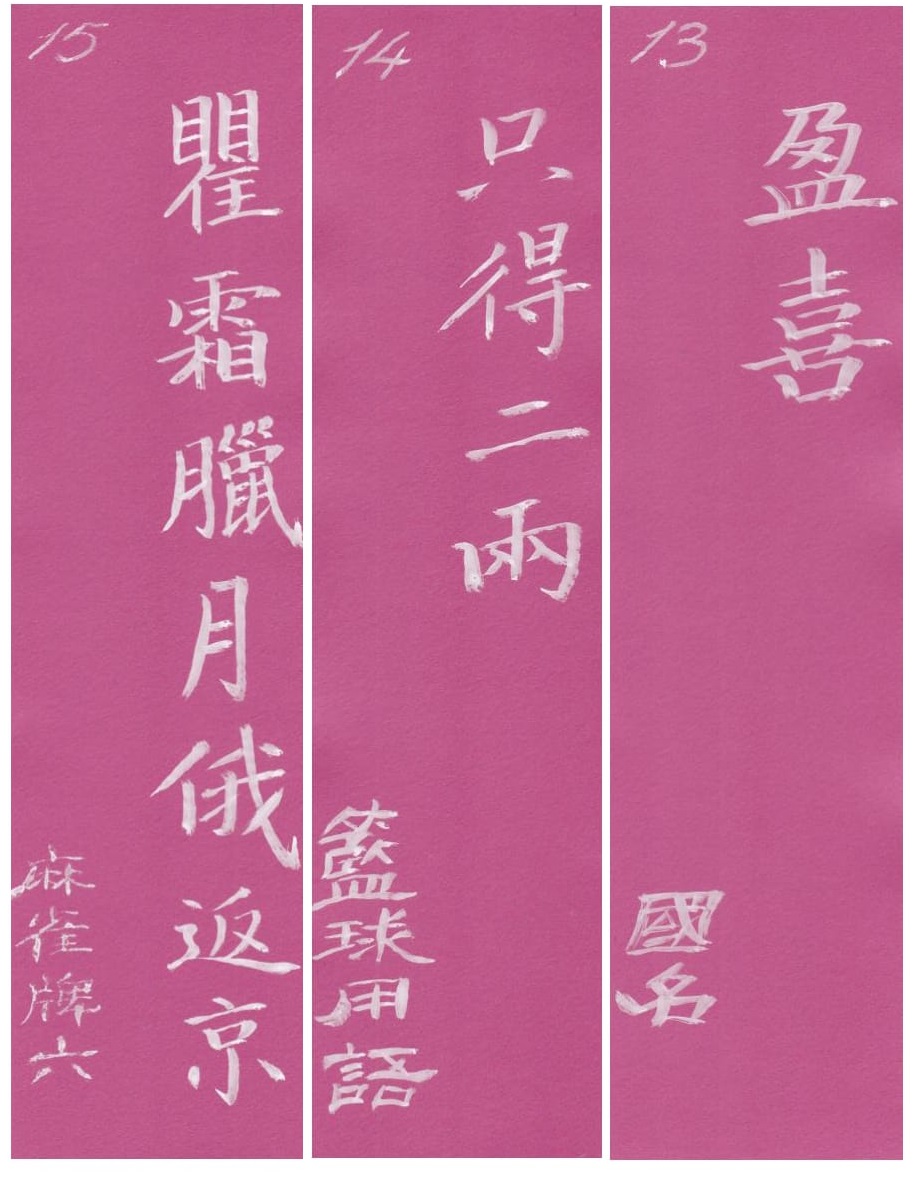 13
盈喜
國名
14
只得二兩
籃球用語
15
瞿霜臘月俄返京
麻雀牌六